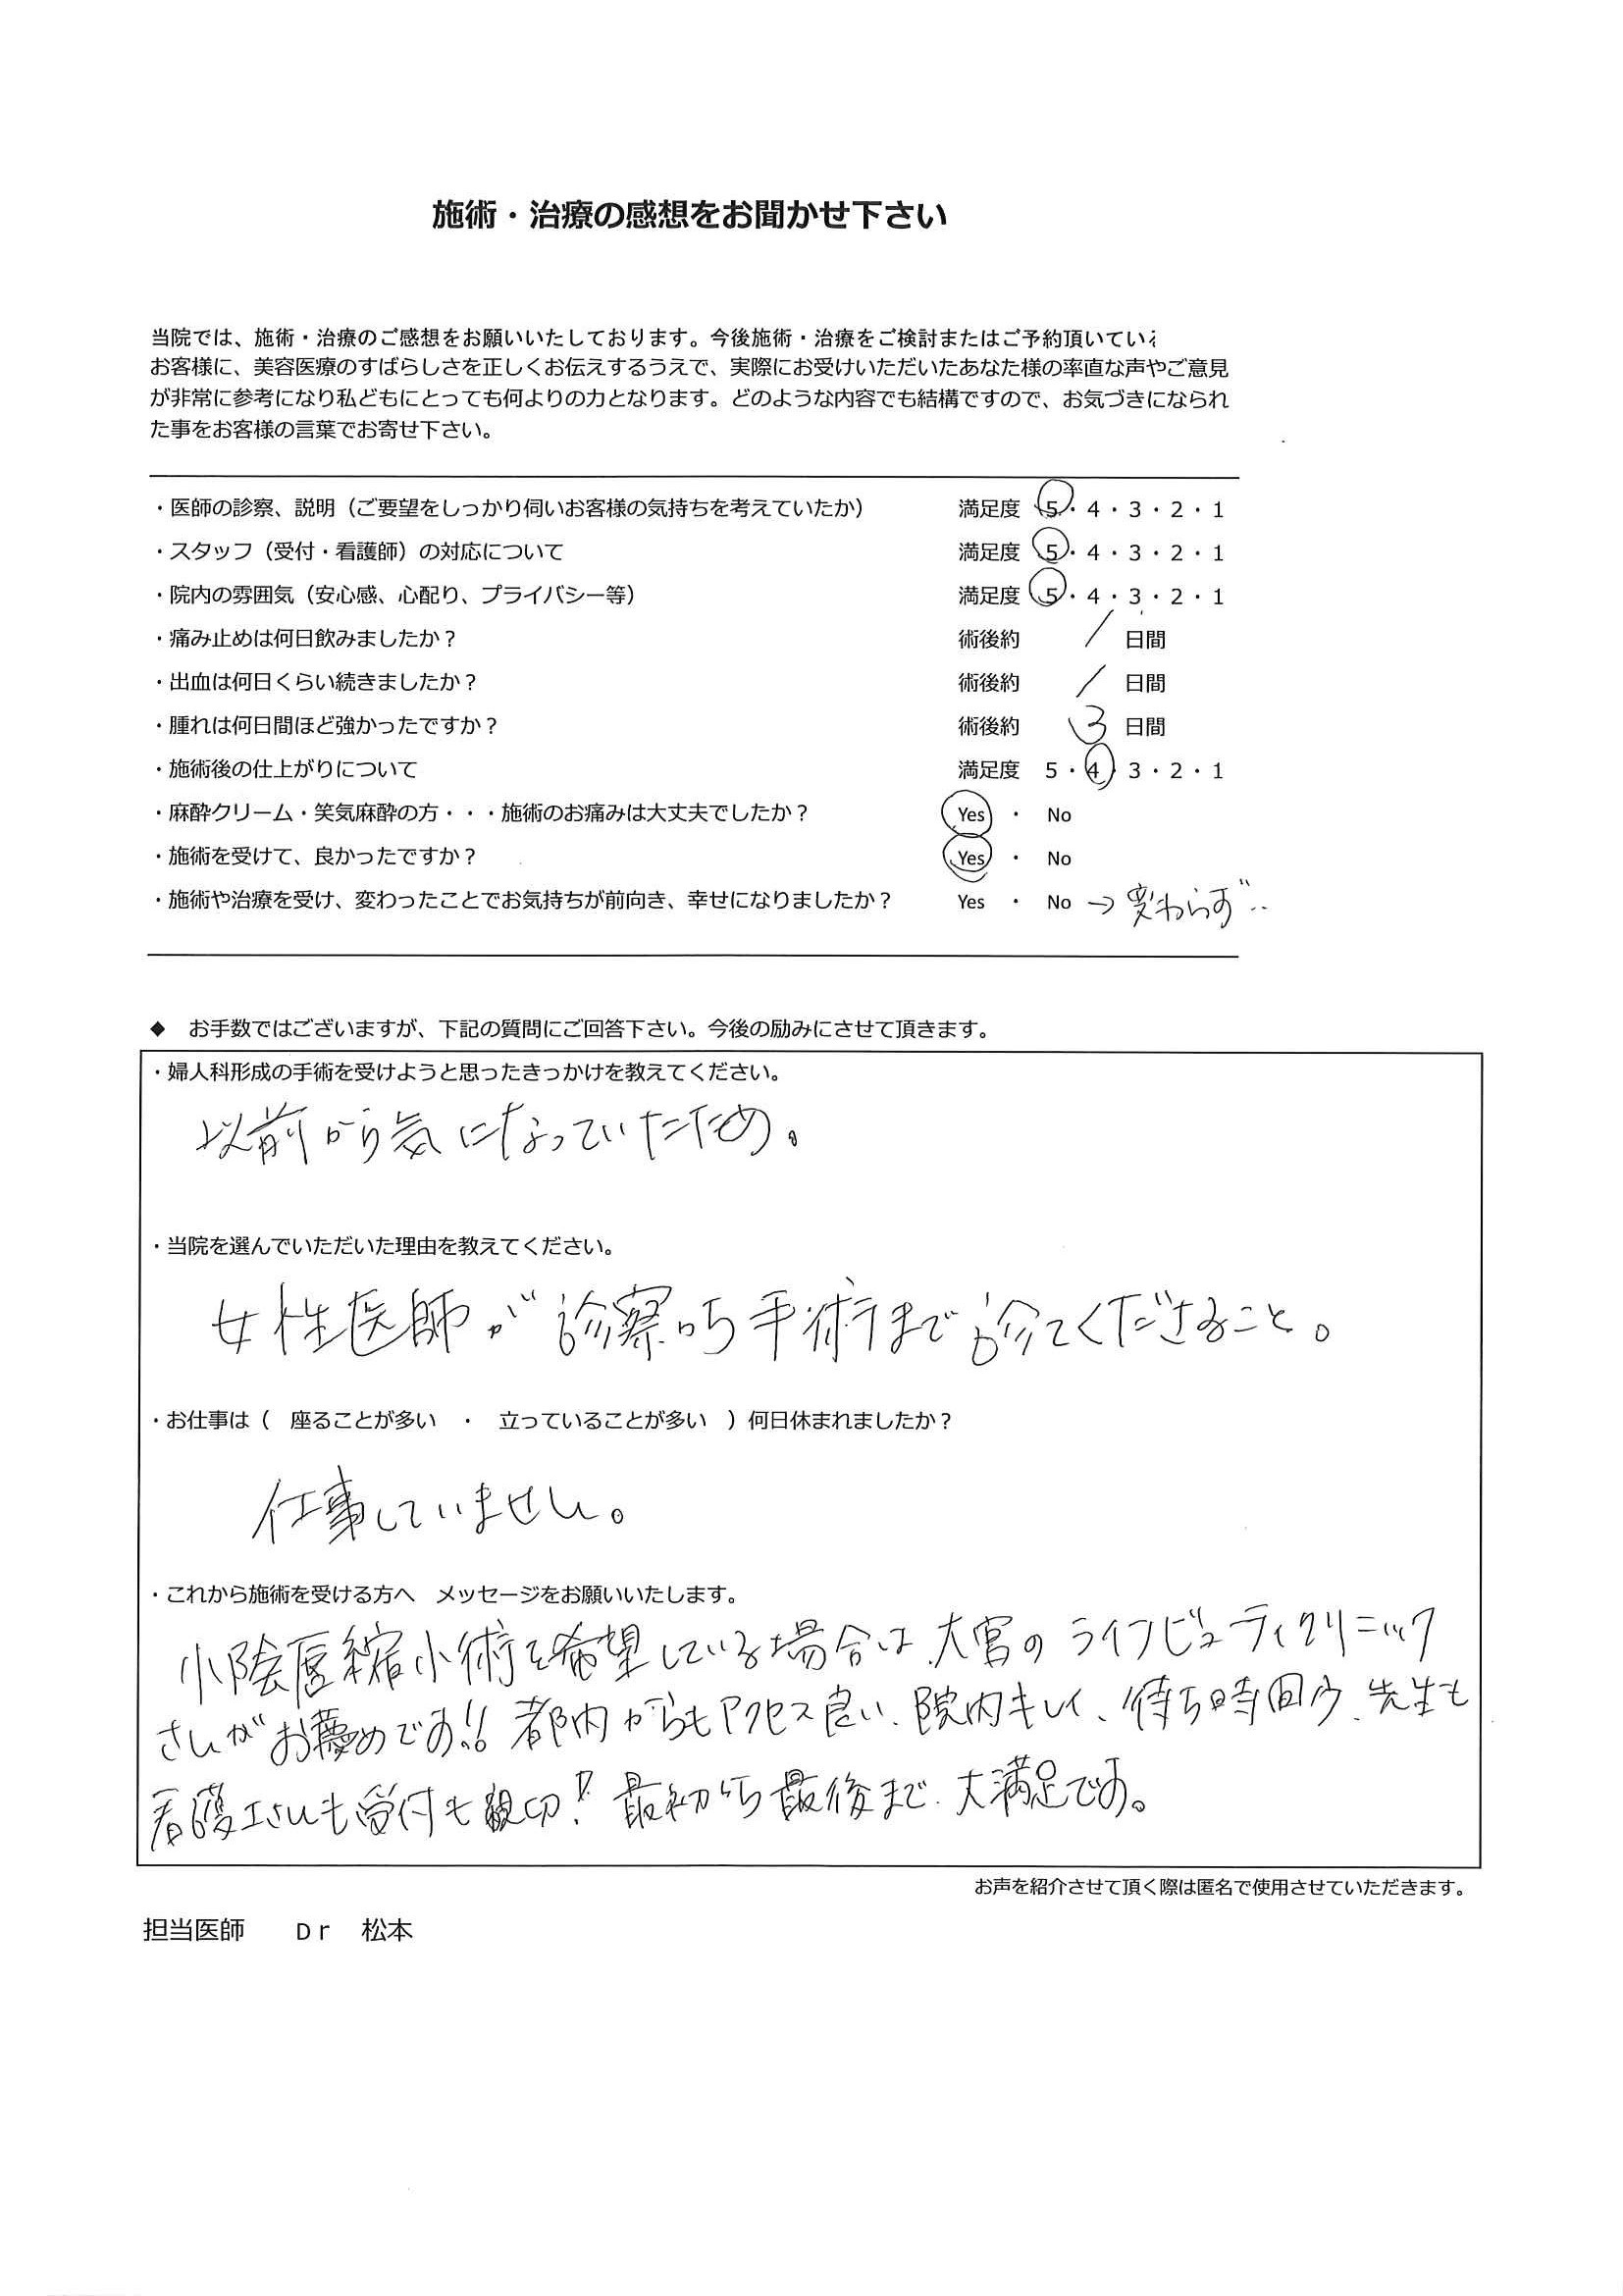 施術・治療の感想をお聞かせ下さい
当院では、施術・治療のご感想をお願いいたしております。今後施術・治療をご検討またはご予約頂いている
お客様に、美容医療のすばらしさを正しくお伝えするうえで、実際にお受けいただいたあなた様の率直な声やご意見
が非常に参考になり私どもにとっても何よりの力となります。どのような内容でも結構ですので、お気づきになられ
た事をお客様の言葉でお寄せ下さい。
・医師の診察、説明（ご要望をしっかり伺いお客様の気持ちを考えていたか） 満足度 5・4・3・2・1
・スタッフ（受付・看護師）の対応について 満足度 5・4・3・2・1
・院内の雰囲気（安心感、心配り、プライバシー等） 満足度 5・4・3・2・1
・痛み止めは何日飲みましたか？ 術後約 / 日間
・出血は何日くらい続きましたか？ 術後約 / 日間
・腫れは何日間ほど強かったですか？ 術後約 3 日間
・施術後の仕上がりについて 満足度 5・4・3・2・1
・麻酔クリーム・笑気麻酔の方・・・施術のお痛みは大丈夫でしたか？ Yes ・ No
・施術を受けて、良かったですか？ Yes ・ No
・施術や治療を受け、変わったことでお気持ちが前向き、幸せになりましたか？ Yes ・ No → 変わらず‥
◆ お手数ではございますが、下記の質問にご回答下さい。今後の励みにさせて頂きます。
・婦人科形成の手術を受けようと思ったきっかけを教えてください。
以前から気になっていたため。
・当院を選んでいただいた理由を教えてください。
女性医師が診察から手術まで診てくださること。
・お仕事は（ 座ることが多い ・ 立っていることが多い ）何日休まれましたか？
仕事していません。
・これから施術を受ける方へ メッセージをお願いいたします。
小陰唇縮小術を希望している場合は、大宮のライフビューティクリニック
さんがお薦めです!! 都内からもアクセス良い、院内キレイ、待ち時間少、先生も
看護士さんも受付も親切! 最初から最後まで、大満足です。
お声を紹介させて頂く際は匿名で使用させていただきます。
担当医師 Dr 松本